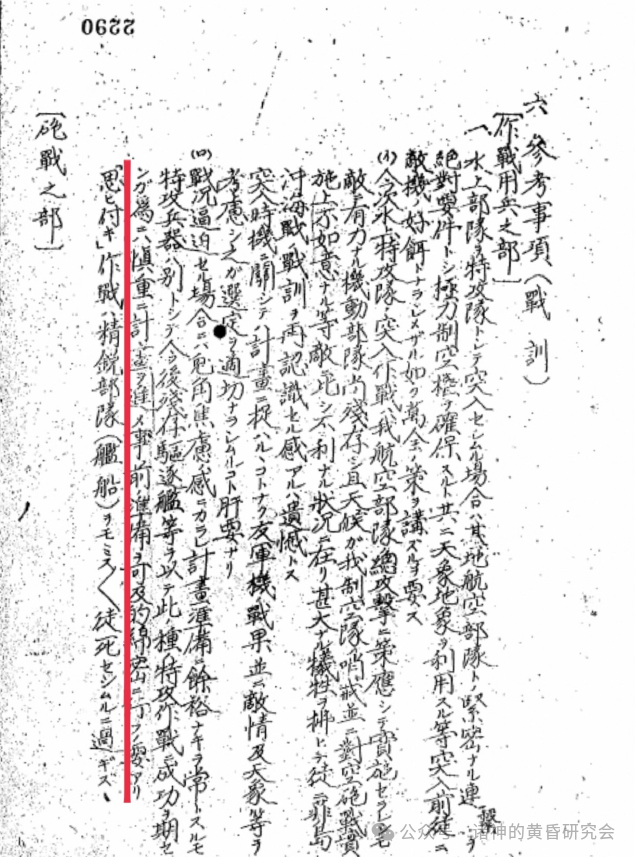 2290
六、參考事項(戰訓)
〔作戰用兵之部〕
一、水上部隊ヲ特攻隊トシテ突入セシムル場合ハ基地航空部隊トノ緊密ナル連繋ヲ
絶對要件トシ極力制空權ヲ確保スルト共ニ天象地象ヲ利用スル等突入前徒ニ
敵機ノ好餌トナラシメザル如ク萬全ノ策ヲ講ズルヲ要ス
(イ)今次水上特攻隊ノ突入作戰ハ我航空部隊ノ總攻撃ニ策應シテ實施セラレシモ
敵ノ有力ナル機動部隊尚殘存シ且天候ガ我制空隊ノ哨戒並ニ對空砲戰實
施上不如意ナル等敵ニ比シ不利ナル狀況ニ在リ甚大ナル犠牲ヲ拂ヒテ徒ニ非島
沖海戰ノ戰訓ヲ再認識セル感アルハ遺憾トス
突入時機ニ關シテハ計畫ニ捉ハルルコトナク友軍機戰果並ニ敵情及天象等ヲ
考慮シ之ガ選定ヲ適切ナラシムルコト肝要ナリ
(ロ)戰況逼迫セル場合ニハ兎角焦慮ノ感ニカラレ計畫準備ニ餘裕ナキヲ常トスルモ
特攻兵器ハ別トシテ今後殘存驅逐艦等ヲ以テ此ノ種特攻作戰ニ成功ヲ期セ
ンガ爲ニハ愼重ニ計畫ヲ進メ事前準備ヲ可及的綿密ニ行フノ要アリ
「思ヒ付キ」作戰ハ精鋭部隊(艦船)ヲモミス〱徒死セシムルニ過ギズ
〔砲戰之部〕
公众号·诸神的黄昏研究会